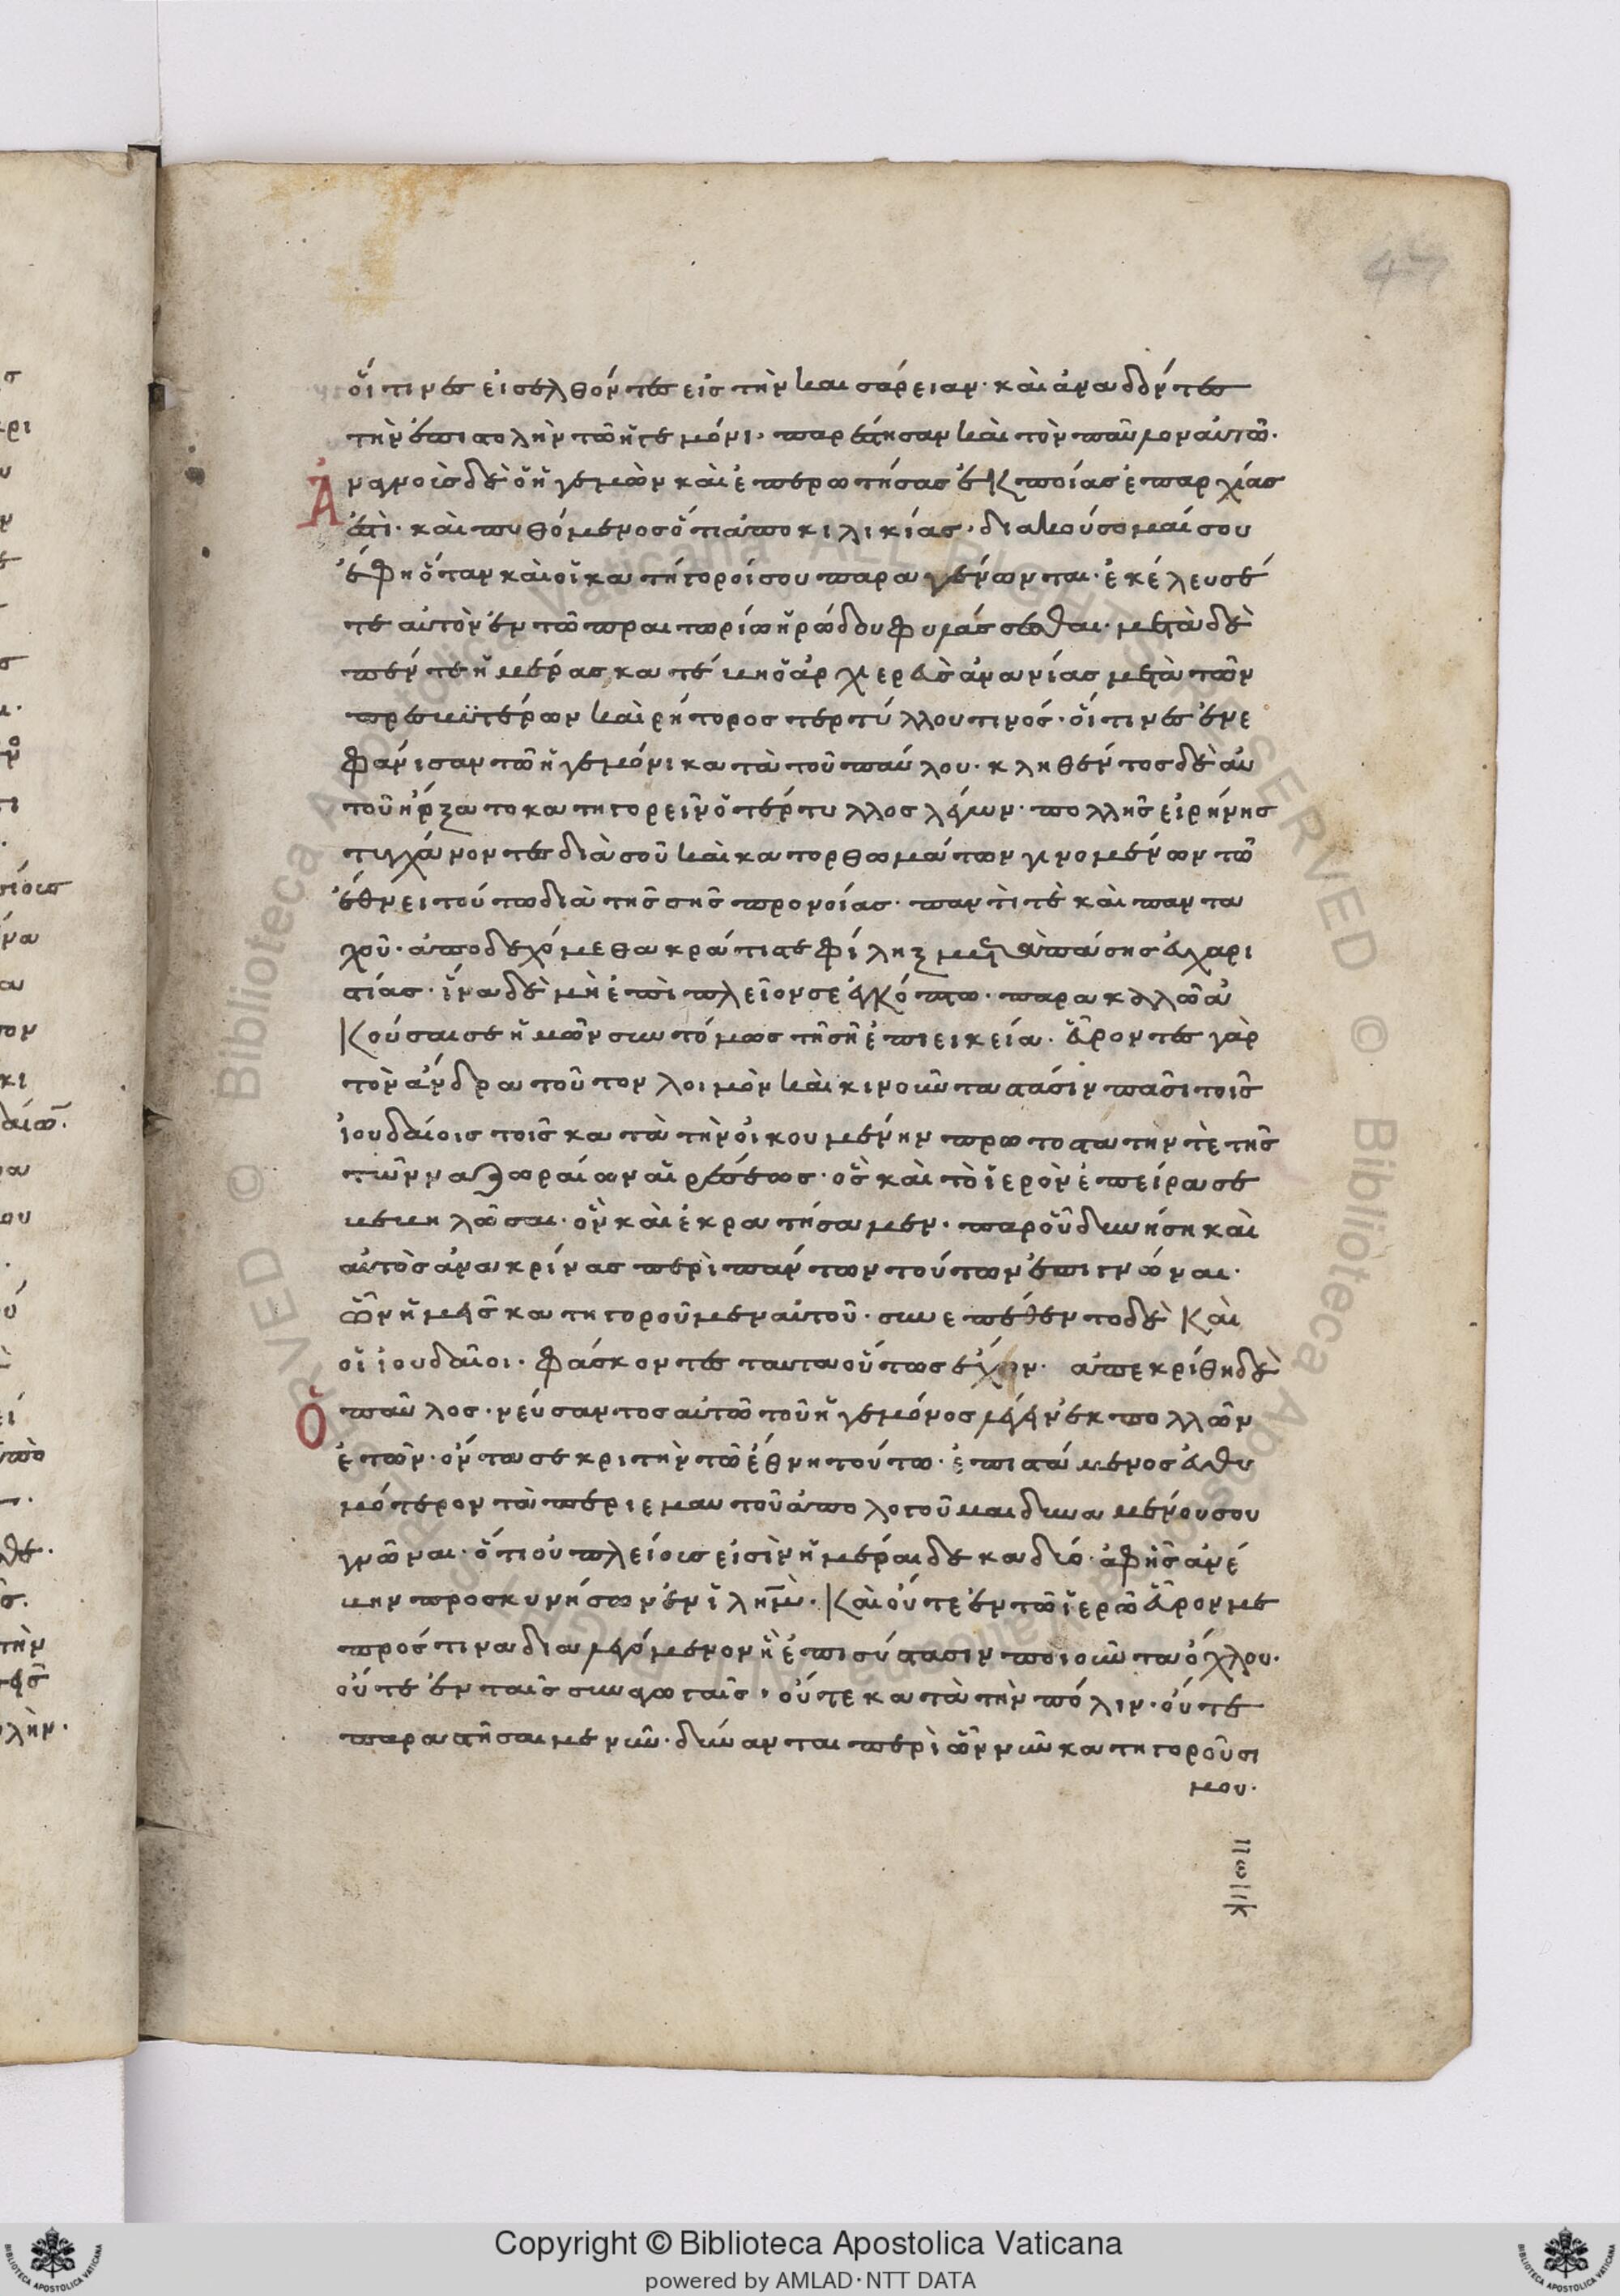 47
οἵτινες εἰσελθόντες εἰς τὴν καισάρειαν· καὶ ἀναδόντες
τὴν ἐπιστολὴν τῶ ἡγεμόνι· παρέστησαν καὶ τὸν παῦλον αὐτῶ·
Ἀναγνοὺς δὲ ὁ ἡγεμὼν καὶ ἐπερωτήσας ἐκ ποίας ἐπαρχίας
ἐστὶ· καὶ πυθόμενος ὅτι ἀπο κιλικίας· διακούσομαί σου
ἔφη ὅταν καὶ οἱ κατήγοροί σου παραγένωνται· ἐκέλευσέ
τε αὐτὸν ἐν τῶ πραιτωρίω ἡρώδου φυλάσσεσθαι· μετὰ δὲ
πέντε ἡμέρας κατέβη ὁ ἀρχιερεὺς ἀνανίας μετὰ τῶν
πρεσβϋτέρων καὶ ρήτορος τερτύλλου τινός· οἵτινες ἐνε
φάνισαν τῶ ἡγεμόνι κατὰ τοῦ παύλου· κληθέντος δὲ αὐ
τοῦ ἤρξατο κατηγορεῖν ὁ τέρτυλλος λέγων· πολλῆς εἰρήνης
τυγχάνοντες διὰ σοῦ καὶ κατορθωμάτων γινομένων τῶ
ἔθνει τούτω διὰ τῆς σῆς προνοίας· παντὶ τὲ καὶ παντα
χοῦ· ἀποδεχόμεθα κράτιστε φίληξ μετὰ πάσης εὐχαρι
στίας· ἵνα δὲ μὴ ἐπὶ πλεῖον σε ἐγκόπτω· παρακαλλῶ ἀ
κούσαι σε ἡμῶν συντόμως τῆ σῆ ἐπιεικεία· εὑρόντες γὰρ
τὸν ἄνδρα τοῦτον λοιμὸν καὶ κινοῦντα στάσιν πᾶσι τοῖς
ἰουδαίοις τοῖς κατὰ τὴν οἰκουμένην πρωτοστάτην τὲ τῆς
τῶν ναζωραίων αἱρέσεως· ὃς καὶ τὸ ἱερὸν ἐπείρασε
βεβηλῶσαι· ὃν καὶ ἐκρατήσαμεν· παρ οὗ δυνήση καὶ
αὐτὸς ἀνακρίνας περὶ πάντων τούτων ἐπιγνῶναι·
ὧν ἡμεῖς κατηγοροῦμεν αὐτοῦ· συνεπέθεντο δὲ καὶ
οἱ ἰουδαῖοι· φάσκοντες ταυτα οὕτως ἔχειν· ἀπεκρίθη δὲ
Ὁ παῦλος· νεύσαντος αὐτῶ τοῦ ἡγεμόνος λέγειν ἐκ πολλῶν
ἐτῶν· ὄντα σε κριτὴν τῶ ἔθνη τούτω· ἐπιστάμενος εὐθυ
μότερον τὰ περι εμαυτοῦ ἀπολογοῦμαι δυναμένου σου
γνῶναι· ὅτι οὐ πλείους εἰσὶν ἡμέραι δεκαδύο· ἀφῆς ἀνέ
βην προσκυνήσων ἐν ἱλημ· καὶ οὔτε ἐν τῶ ἱερῶ εὗρον με
πρός τινα διαλεγόμενον ἢ ἐπισύστασιν ποιοῦντα ὄχλου·
οὔτε ἐν ταῖς συναγωγαῖς· οὔτε κατὰ τὴν πόλιν· οὔτε
παραστῆσαι με νῦν· δύνανται περὶ ὧν νῦν κατηγοροῦσι
μου·